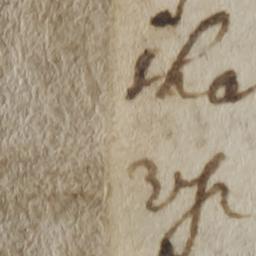 sha
vp